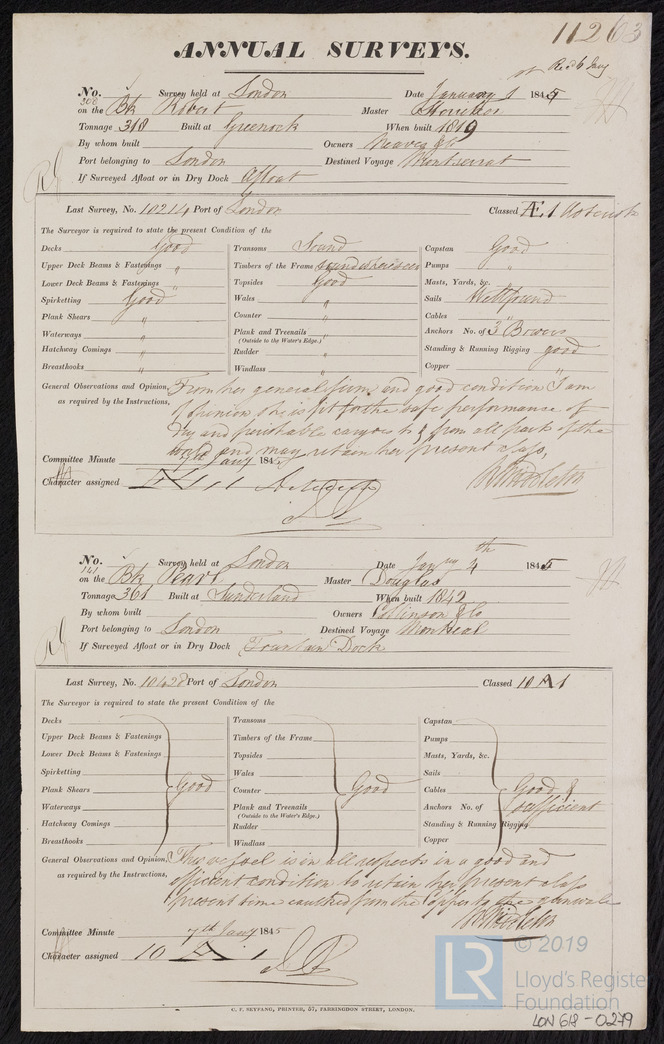 11263
ANNUAL SURVEYS.
Recd 6 Jany
No. Survey held at London Date January 1 1845
308
on the Bk Robert Master
Tonnage 318 Built at Greenock When built 1819
By whom built Owners Neaves & Co
Port belonging to London Destined Voyage Montserrat
If Surveyed Afloat or in Dry Dock Afloat
Last Survey, No. 10214 Port of London Classed Æ 1 Asterisk
The Surveyor is required to state the present Condition of the
Decks Good Transoms Sound Capstan Good
Upper Deck Beams & Fastenings " Timbers of the Frame sound where seen Pumps "
Lower Deck Beams & Fastenings " Topsides Good Masts, Yards, &c. "
Spirketting Good Wales " Sails Well found
Plank Shears " Counter " Cables "
Waterways " Plank and Treenails " Anchors No. of 3 Bowers
(Outside to the Water's Edge.)
Hatchway Comings " Rudder " Standing & Running Rigging good
Breasthooks " Windlass " Copper "
General Observations and Opinion, From her general form and good condition I am
as required by the Instructions, of opinion she is fit for the safe performance of
dry and perishable cargoes to & from all parts of the
world and may retain her present class,
Committee Minute 7th Jany 1845
Character assigned Æ 1 W Middleton
No. Survey held at London Date Janry 4th 1845
141
on the Bk Pearl Master Douglas
Tonnage 361 Built at Sunderland When built 1842
By whom built Owners Collinson & Co
Port belonging to London Destined Voyage Montreal
If Surveyed Afloat or in Dry Dock Fountain Dock
Last Survey, No. 10428 Port of London Classed 10 A 1
The Surveyor is required to state the present Condition of the
Decks Transoms Capstan
Upper Deck Beams & Fastenings Timbers of the Frame Pumps
Lower Deck Beams & Fastenings Topsides Masts, Yards, &c.
Spirketting Wales Sails
Plank Shears Good Counter Good Cables Good &
Waterways Plank and Treenails Anchors No. of sufficient
(Outside to the Water's Edge.)
Hatchway Comings Rudder Standing & Running Rigging
Breasthooks Windlass Copper
General Observations and Opinion, This vessel is in all respects in a good and
as required by the Instructions, efficient condition to retain her present class
present time caulked from the Copper to the gunwale
W Middleton
Committee Minute 7th Jany 1845
Character assigned 10 A 1
© 2019
LR
Lloyd's Register
Foundation
C. F. SEYFANG, PRINTER, 57, FARRINGDON STREET, LONDON.
LON 618-0279